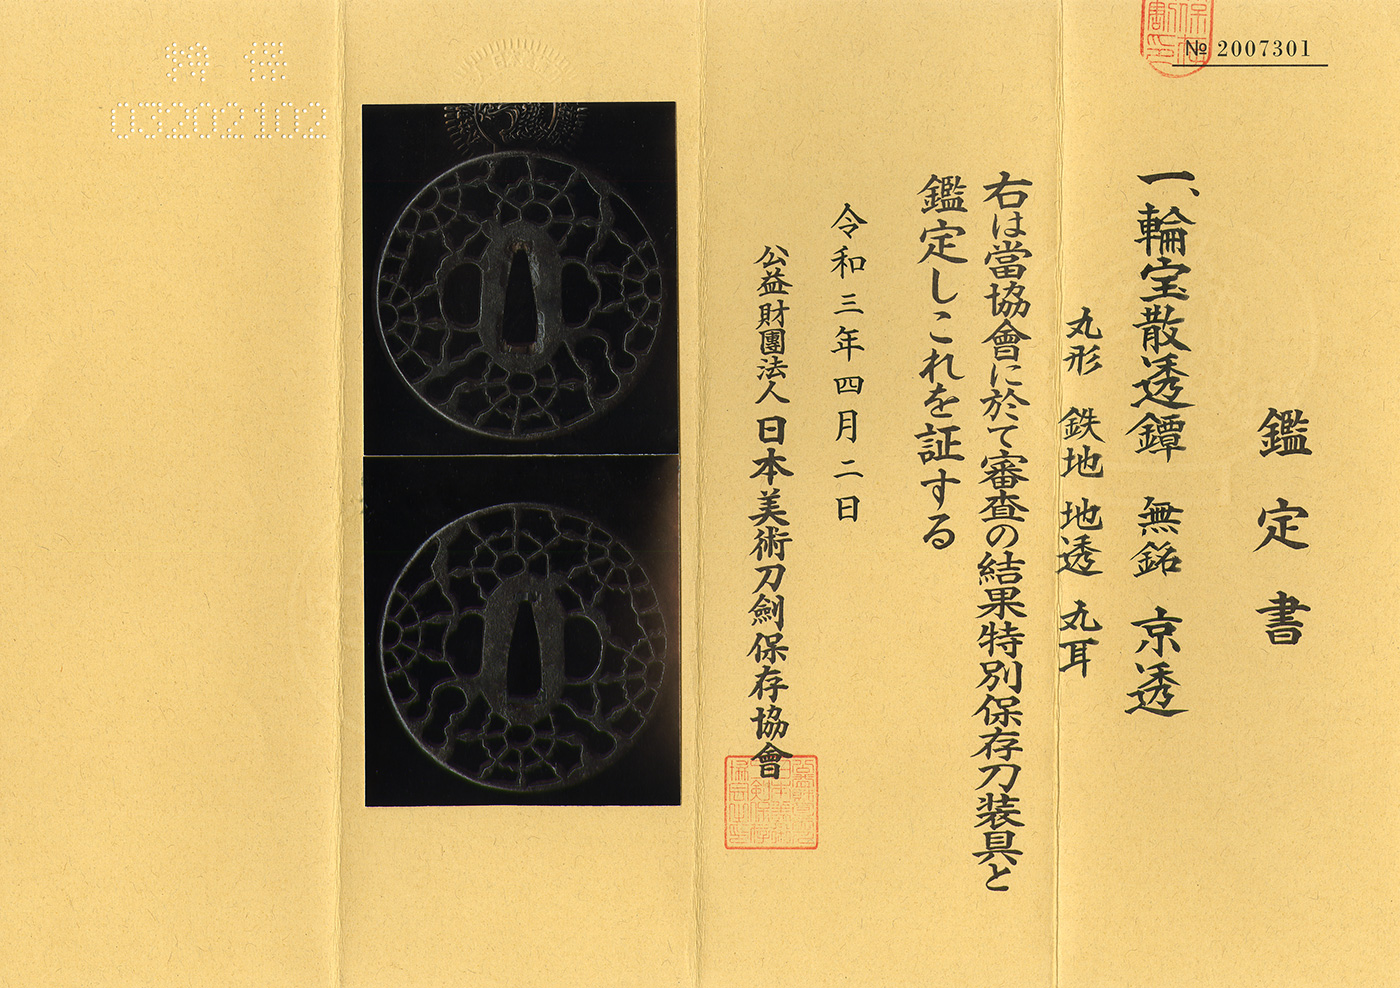 № 2007301
鑑定書
一、輪宝散透鐔 無銘 京透
丸形 鉄地 地透 丸耳
右は當協會に於て審査の結果特別保存刀装具と
鑑定しこれを証する
令和三年四月二日
公益財團法人 日本美術刀劍保存協會
03202102